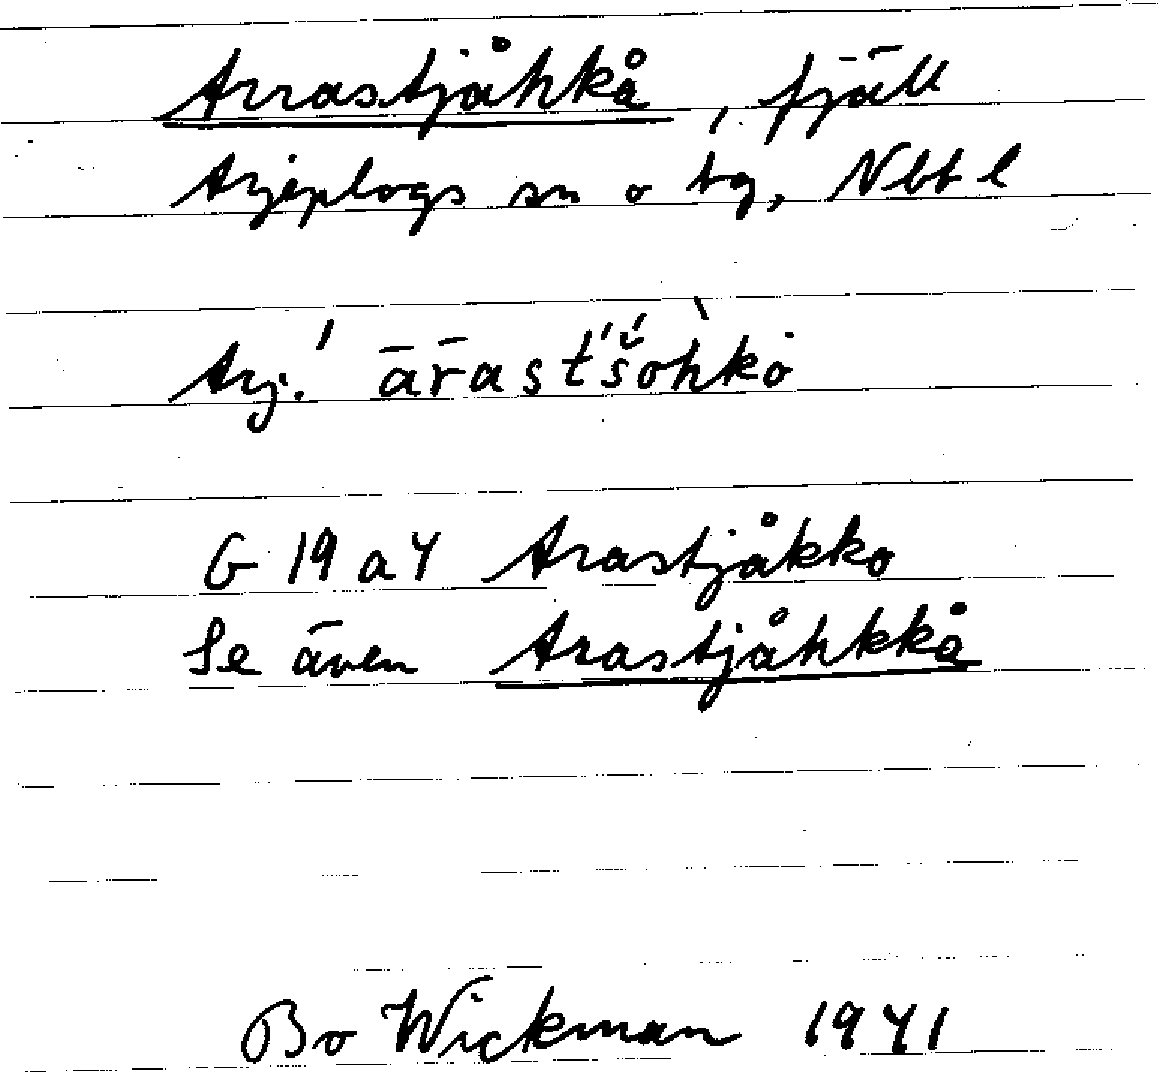 Arrastjåhkå, fjäll
Arjeplogs sn o tg, Nbt l
Arj. ˈār̄ast́š́òhkȯ
G 19 a 4 Arastjåkko
Se även Arastjåhkkå
Bo Wickman 1941